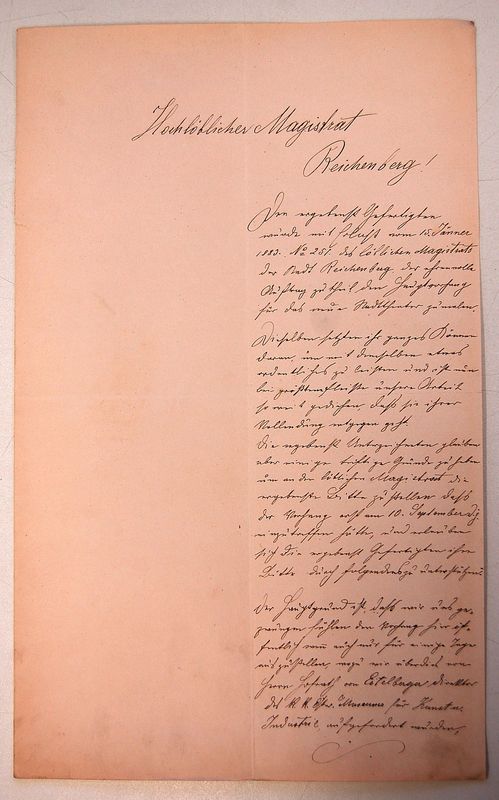 Hochlöblicher Magistrat
Reichenberg!
Den ergebenst Gefertigten
wurde mit Erlaß vom 15. Jänner
1883. No 251. des löblichen Magistrats
der Stadt Reichenberg, der ehrenvolle
Auftrag zu theil den Hauptvorhang
für das neue Stadttheater zu malen.
Dieselben setzten ihr ganzes Können
daran, um mit demselben etwas
ordentliches zu leisten und ist nun
bei größtem Fleiße unsere Arbeit
so weit gediehen, daß sie ihrer
Vollendung entgegen geht.
Die ergebenst Unterzeichneten glauben
aber einige triftige Gründe zu haben
um an den löblichen Magistrat die
ergebenste Bitte zu stellen daß
der Vorhang erst am 10. September d. J.
einzutreffen hätte, und erlauben
sich die ergebenst Gefertigten ihre
Bitte durch folgendes zu unterstützen:
Der Hauptgrund ist, daß wir uns ge-
zwungen fühlen den Vorhang hier öf-
fentlich wenn auch nur für einige Tage
auszustellen, wozu wir überdies von
Herrn Hofrath von Eitelberger Direktor
des k. k. östr. Museums für Kunst u.
Industrie, aufgefordert wurden,